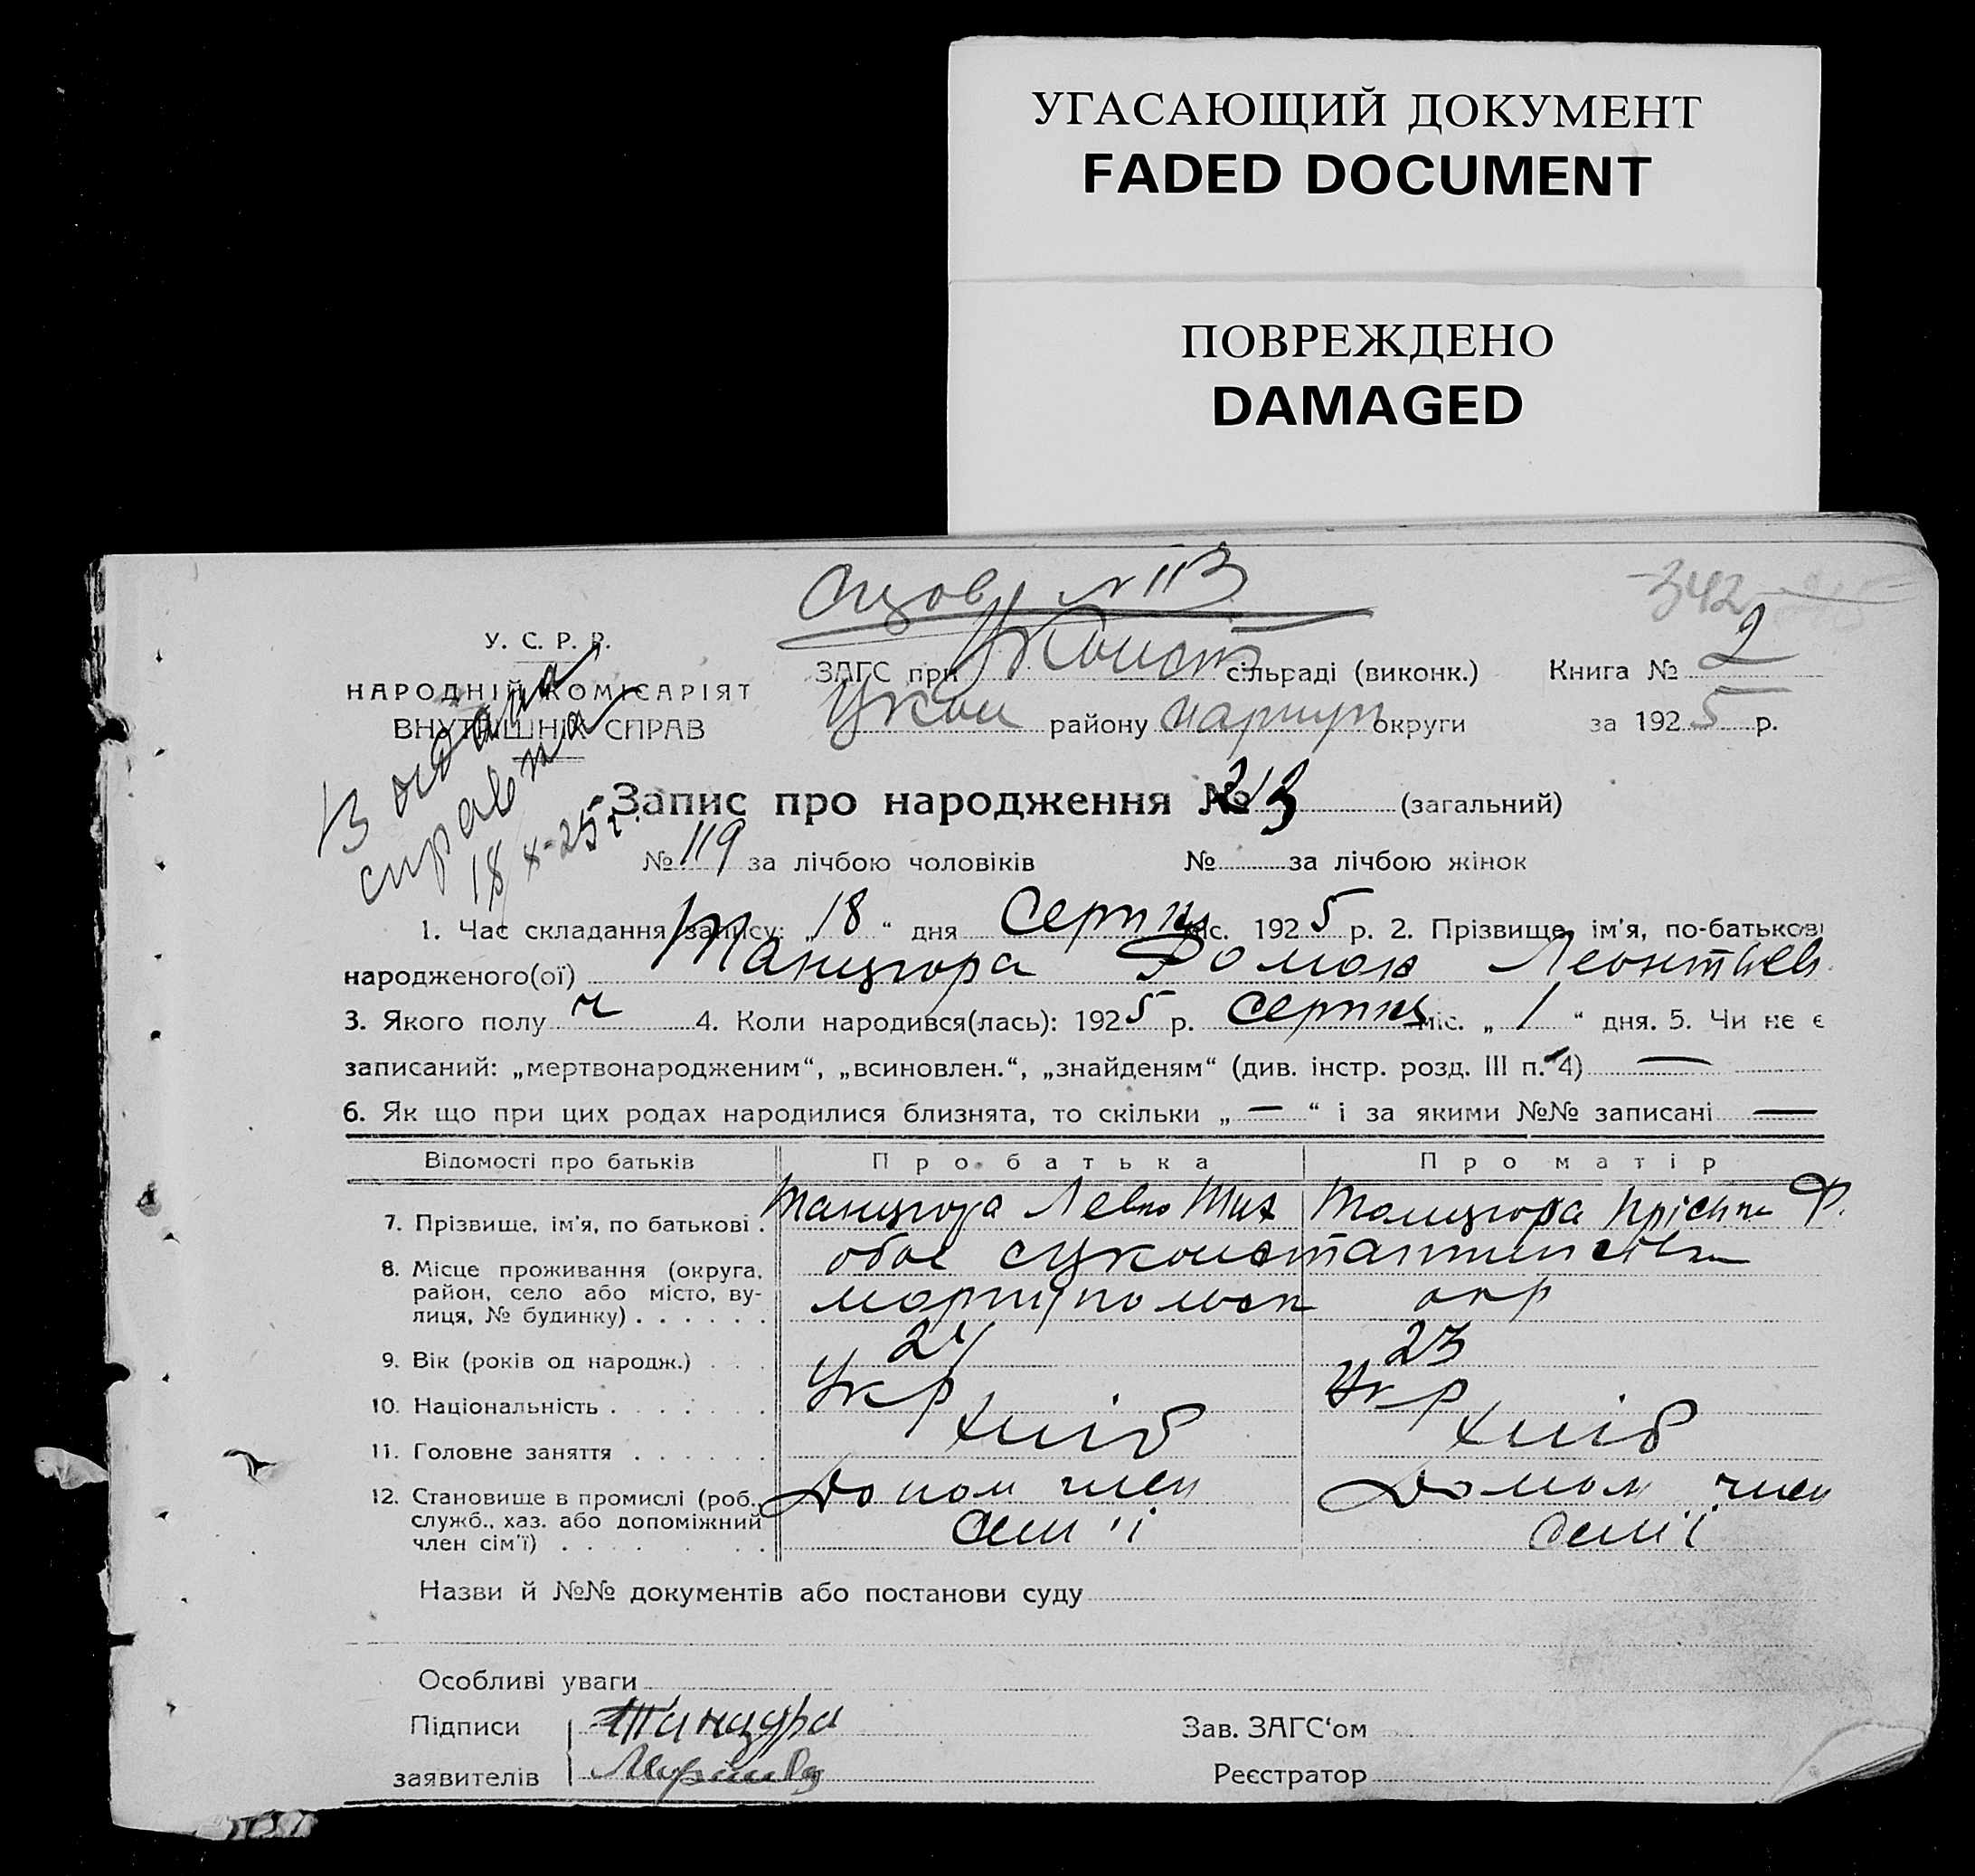 УГАСАЮЩИЙ ДОКУМЕНТ
FADED DOCUMENT
ПОВРЕЖДЕНО
DAMAGED
№ 113
342
У. С. Р. Р.
НАРОДНІЙ КОМІСАРІЯТ
ВНУТРІШНІХ СПРАВ
ЗАГС при УКонст сільраді (виконк.) Книга № 2
Укон району Мариуп округи за 1925 р.
справка
18/X-25 г.
Запис про народження № 213 (загальний)
№ 119 за лічбою чоловіків № за лічбою жінок
1. Час складання запису: „18“ дня Серпня міс. 1925 р. 2. Прізвище, ім'я, по-батькові
народженого(ої) Танцюра Роман Леонтіев
3. Якого полу ч 4. Коли народився(лась): 1925 р. Серпня міс. „1“ дня. 5. Чи не є
записаний: „мертвонародженим“, „всиновлен.“, „знайденям“ (див. інстр. розд. III п. 4) —
6. Як що при цих родах народилися близнята, то скільки „—“ і за якими №№ записані —
Відомості про батьків Про батька Про матір
7. Прізвище, ім'я, по батькові . Танцюра Левко Тих Танцюра Ф.
8. Місце проживання (округа, район, село або місто, вулиця, № будинку) . . . . . . обое
окр
9. Вік (років од народж.) . . . 24 23
10. Національність . . . . . . . Укр Укр
11. Головне заняття . . . . . . хліб хліб
12. Становище в промислі (роб., служб., хаз. або допоміжний член сім'ї) . . . . . . Допом член Допом член
сем'ї сем'ї
Назви й №№ документів або постанови суду
Особливі уваги
Підписи Танцура Зав. ЗАГС'ом
заявителів Реєстратор